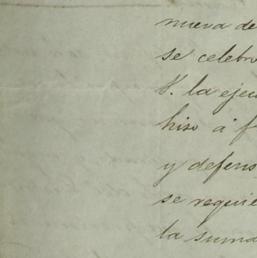 nueva de
se celebr
V. la ejec
hiso á f
y defens
se requie
la suma